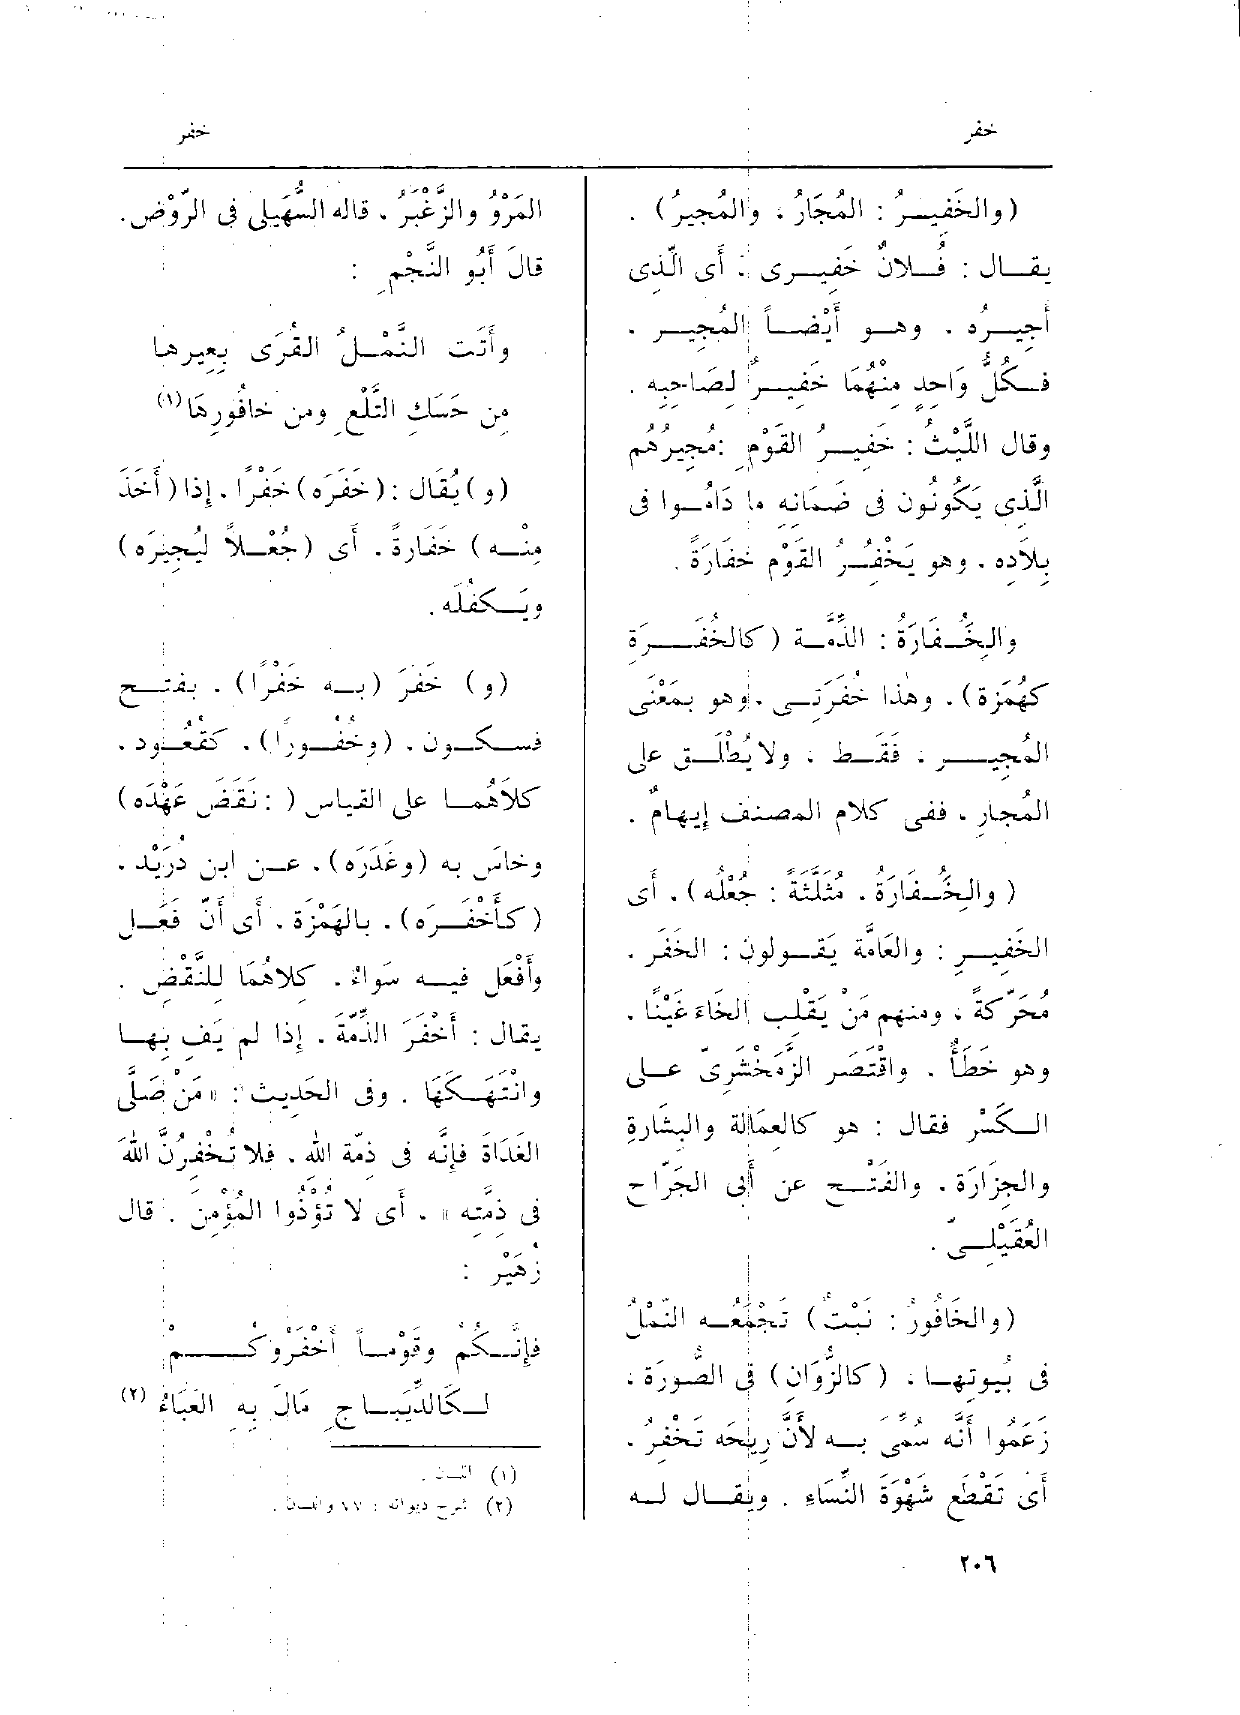 خفر
خفر
(والخَفِيــرُ : المُجَارُ ، والمُجِيرُ) .
يقــال : فُــلانٌ خَفِيــرى : أَى الّذِى
أُجِيــرُه . وهــو أَيْضــاً المُجِيــر .
فــكُلُّ وَاحِدٍ مِنْهُمَا خَفِيــرٌ لِصَاحِبِه .
وقال اللَّيْثُ : خَفِيــرُ القَوْمِ :مُجِيرُهُم
الَّذِى يَكُونُون فى ضَمَانِه ما دَامُــوا فى
بِلاَدِه . وهو يَخْفُــرُ القَوْمَ خفَارَةً .
والخُــفَارَةُ : الذِّمَّــة ( كالخُفَــرَةِ
كهُمَزة) . وهٰذا خُفَرَتِــى .وهو بمَعْنَى
المُجِيــر ، فَقَــط ، ولا يُطْلَــق على
المُجارِ . ففى كلام المصنف إيهامٌ .
( والخُــفَارَة . مُثَلَّثَةً : جُعْلُه) . أَى
الخَفِيــرِ : والعَامَّة يَقُــولون : الخَفَر .
مُحَرّكةً ، ومنهم مَنْ يَقْلِب الخَاءَ غَيْنًا .
وهو خَطَأٌ . واقْتَصَر الزَّمَخْشَرِىّ علــى
الــكَسْرِ فقال : هو كالعِمَالة والبِشَارةِ
والجِزَارَة . والفَتْــح عن أَبى الجَرّاح
العُقَيْلــىّ .
(والخَافُورُ : نَبْتٌ) تَجْمَعُــه النَّمْلُ
فى بُيوتِهــا ، ( كالزُّوَانِ) فى الصُّورَة ،
زَعَمُوا أَنَّه سُمِّىَ بــه لأَنَّ رِيحَه تَخْفِرُ .
أَى تَقْطَع شَهْوَةَ النِّسَاءِ . ويُقــال لــه
المَرْوُ والزَّغْبَرُ . قاله السُّهَيلى فى الرّوْض.
قالَ أَبُو النَّجْمِ :
وأَتَت النَّمْــلُ القُرَى بِعِيرِها
مِن حَسَكِ التَّلْعِ ومن خافُورِهَا(١)
(و)يُقَال :(خَفَرَه)خَفْرًا . إِذا (أَخَذَ
مِنْــه) خَفَارةً . أَى (جُعْــلاً ليُجِيرَه)
ويَــكفُلَه .
(و) خَفَرَ (بــه خَفْرًا) . بفتــح
فســكــون . (وخُفُــورًا) . كقُعُــود .
كلاَهُمــا على القياس ( : نَقَضَ عَهْدَه)
وخاسَ به (وغَدَرَه) . عــن ابن دُرَيْد .
(كأَخْفَــرَه) . بالهَمْزَة . أَى أَنَّ فَعَــل
وأَفْعَل فيــه سَواءٌ . كلاهُمَا للنَّقْضِ .
يقال : أَخْفَرَ الذِّمّةَ . إذا لم يَفِ بِهــا
وانْتَهَــكَهَا . وفى الحَدِيث : « مَنْ صَلَّى
الغَدَاةَ فإِنَّه فى ذمّة الله . فلا تُخْفِرُنَّ اللهَ
فى ذِمّتِه » . أَى لا تُؤْذُوا المُؤْمِنَ . قال
زُهَيْر :
فإِنَّــكُمُ وقَوْمــاً أَخْفَرُوكُــمْ
لــكَالدِّيبَــاجِ مَالَ بِه العَبَاءُ (٢)
(١) اللسان .
(٢) شرح ديوانه : ٧٧ واللسان .
٢٠٦